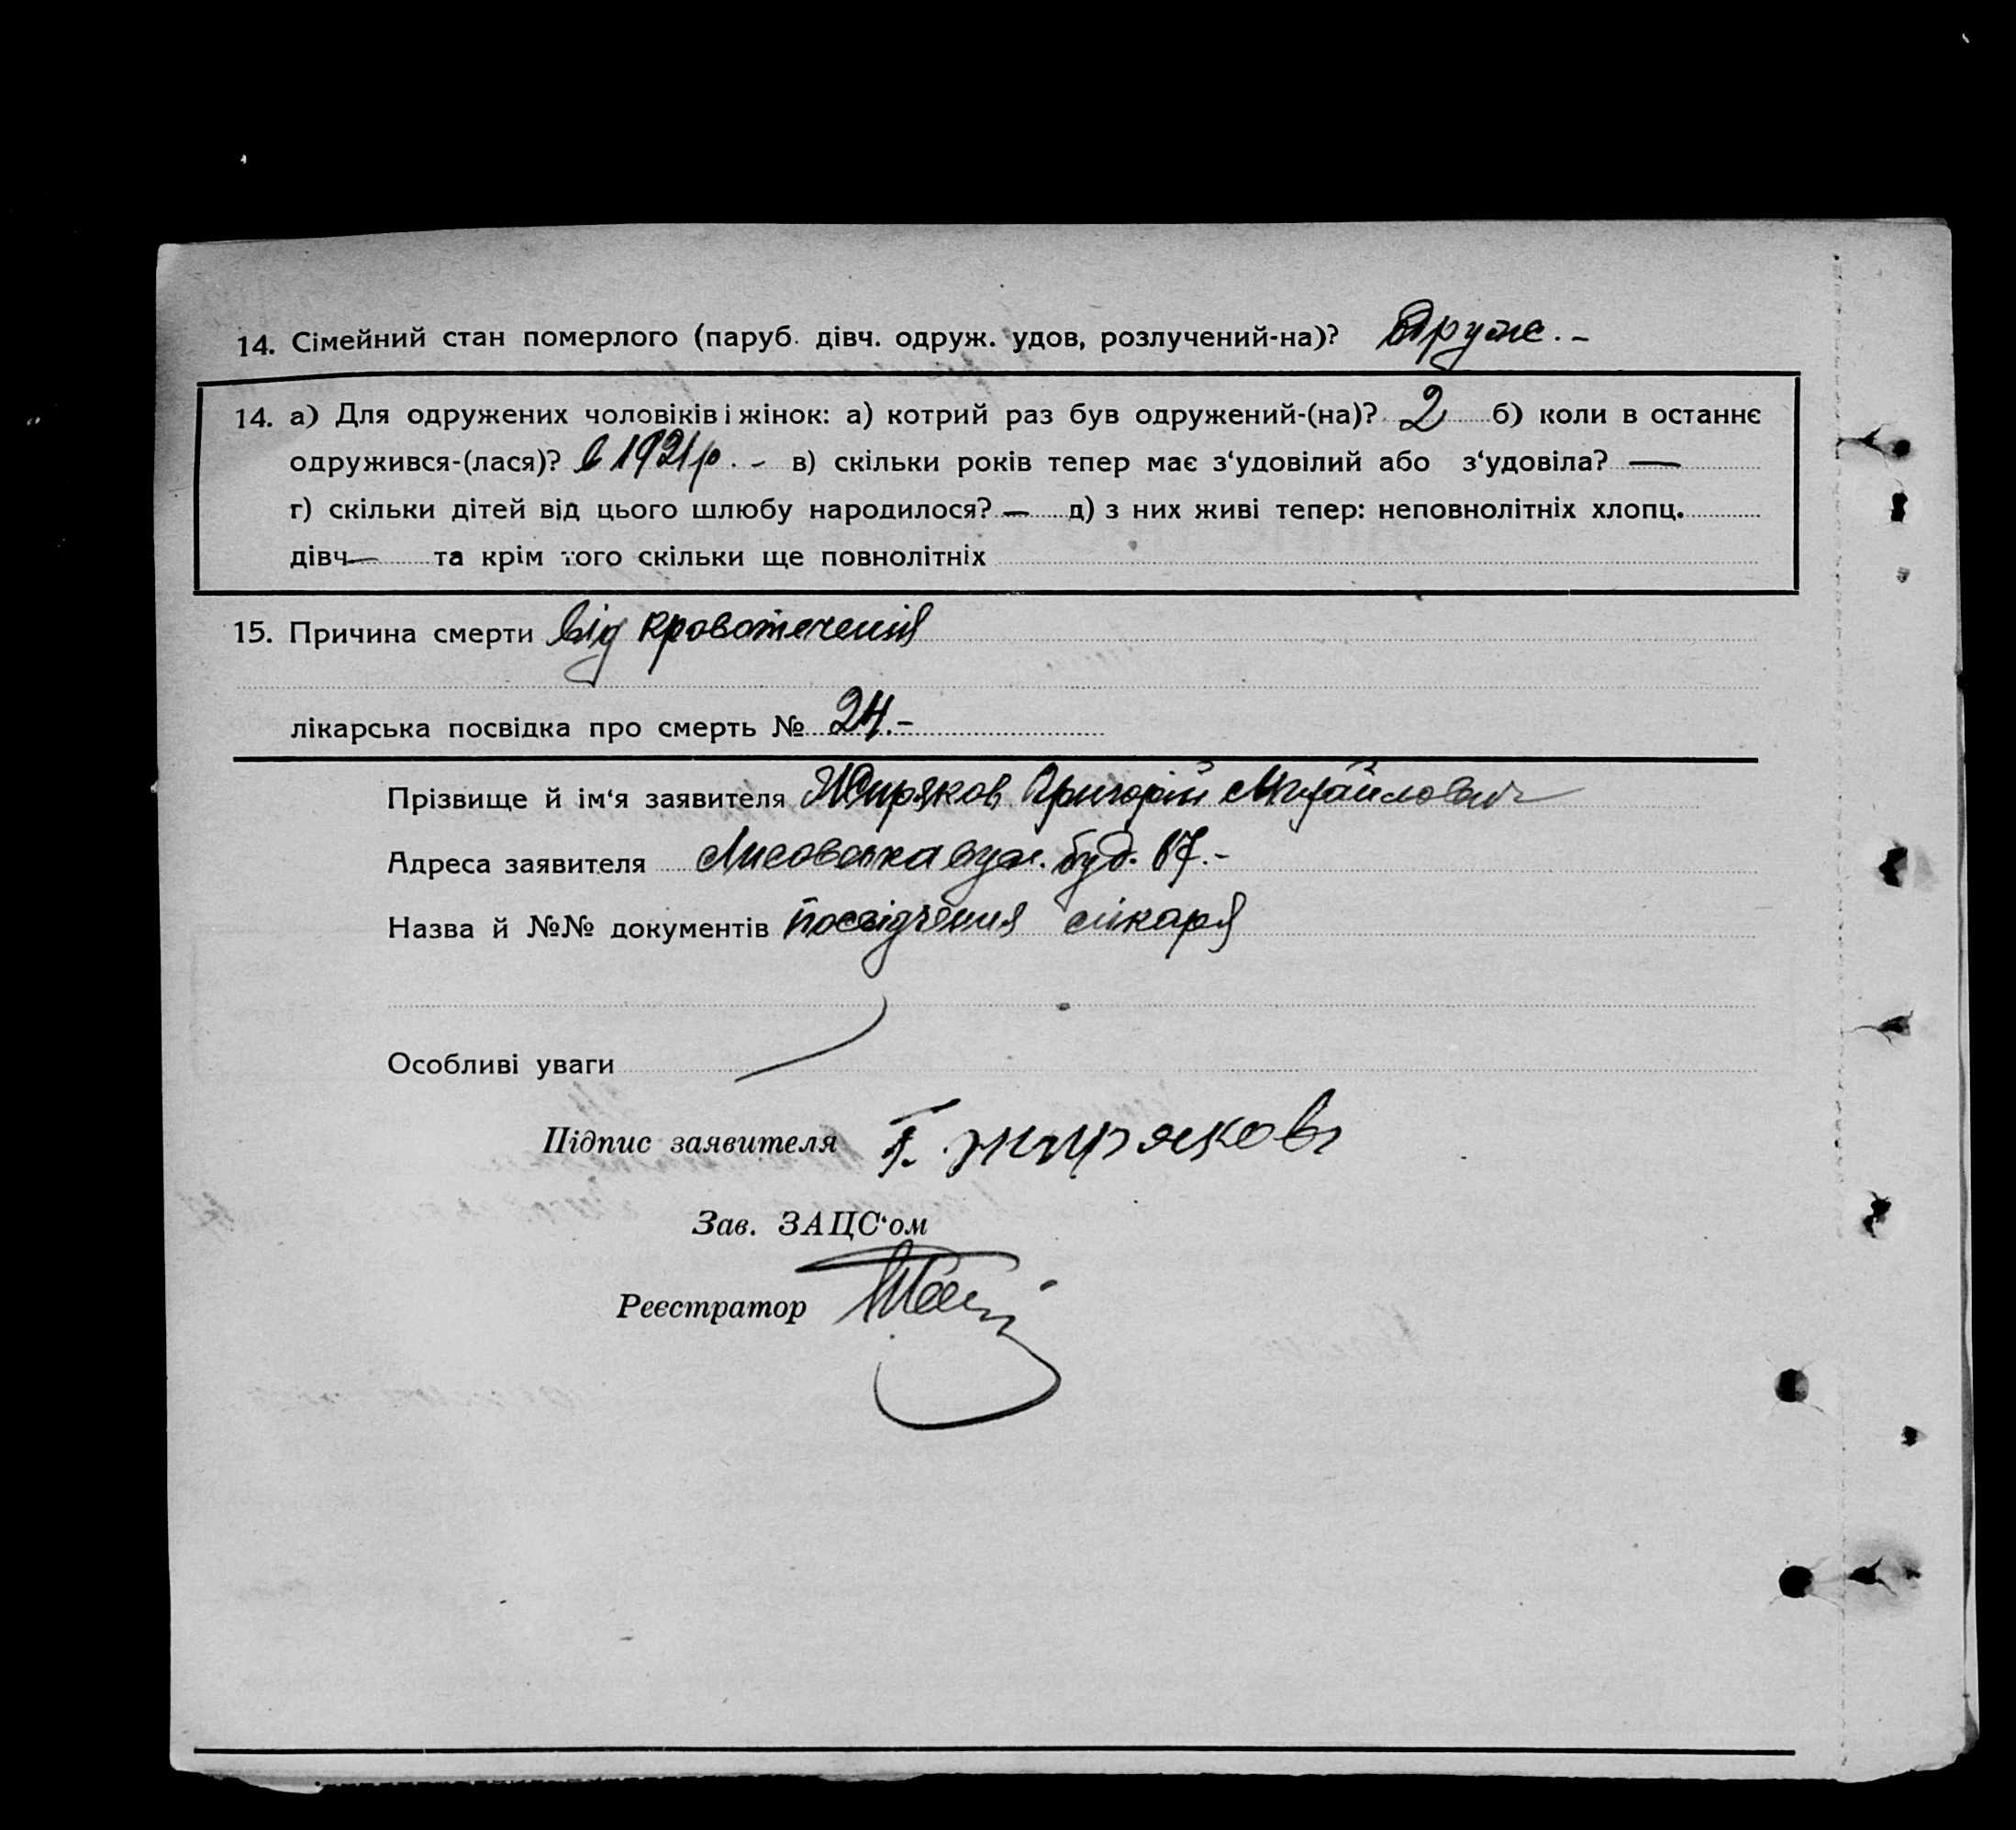 14. Сімейний стан померлого (паруб. дівч. одруж. удов, розлучений-на)? Одруже. -
14. а) Для одружених чоловіків і жінок: а) котрий раз був одружений-(на)? 2 б) коли в останнє
одружився-(лася)? в 1921 р. - в) скільки років тепер має з‘удовілий або з‘удовіла? —
г) скільки дітей від цього шлюбу народилося? — д) з них живі тепер: неповнолітніх хлопц.
дівч — та крім того скільки ще повнолітніх
15. Причина смерти від кровотеченія
лікарська посвідка про смерть № 24.-
Прізвище й ім‘я заявителя Жиряков Григорій Михайлович
Адреса заявителя Лисовська вул. буд. 17.-
Назва й №№ документів посвідчення лікаря
Особливі уваги
Підпис заявителя Г. Жиряков
Зав. ЗАЦС‘ом
Реєстратор